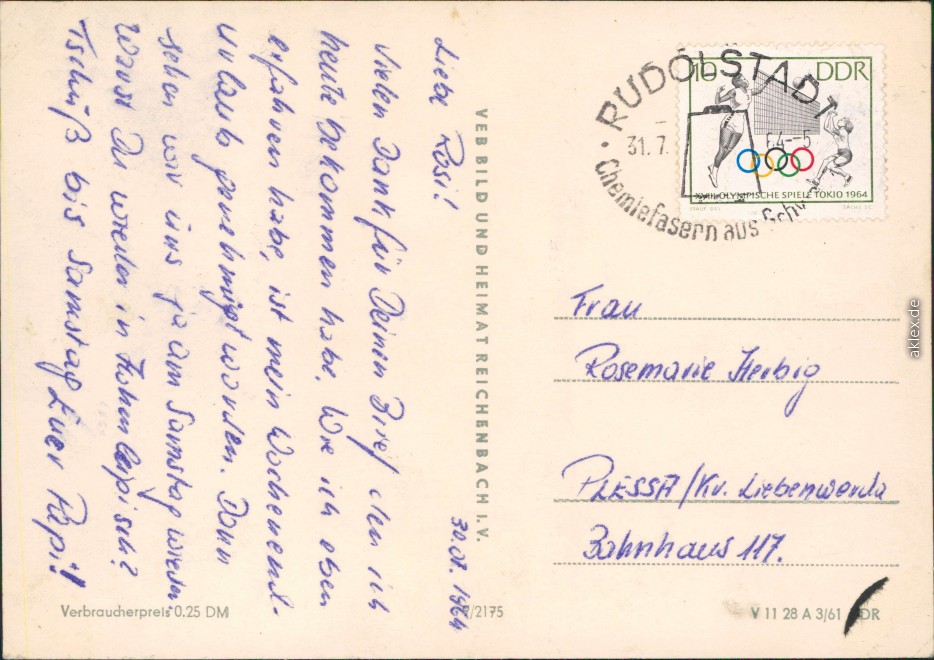 30.07.1964
Liebe Rosi!
Vielen Dank für Deinen Brief den ich
heute bekommen habe. Wie ich eben
erfahren habe, ist mein Wochenend-
urlaub genehmigt worden. Dann
sehen wir uns ja am Samstag wieder
Warst Du wieder in Hohenleipisch?
Tschüß bis Samstag Euer Papi!
VEB BILD UND HEIMAT REICHENBACH I. V.
Verbraucherpreis 0.25 DM
/2175
RUDOLSTADT
31. 7. 64--5
Chemiefasern aus
10 DDR
XVIII. OLYMPISCHE SPIELE TOKIO 1964
Frau
Rosemarie Herbig
PLESSA/Kr. Liebenwerda
Bahnhaus 117.
V 11 28 A 3/61 DR
aklex.de